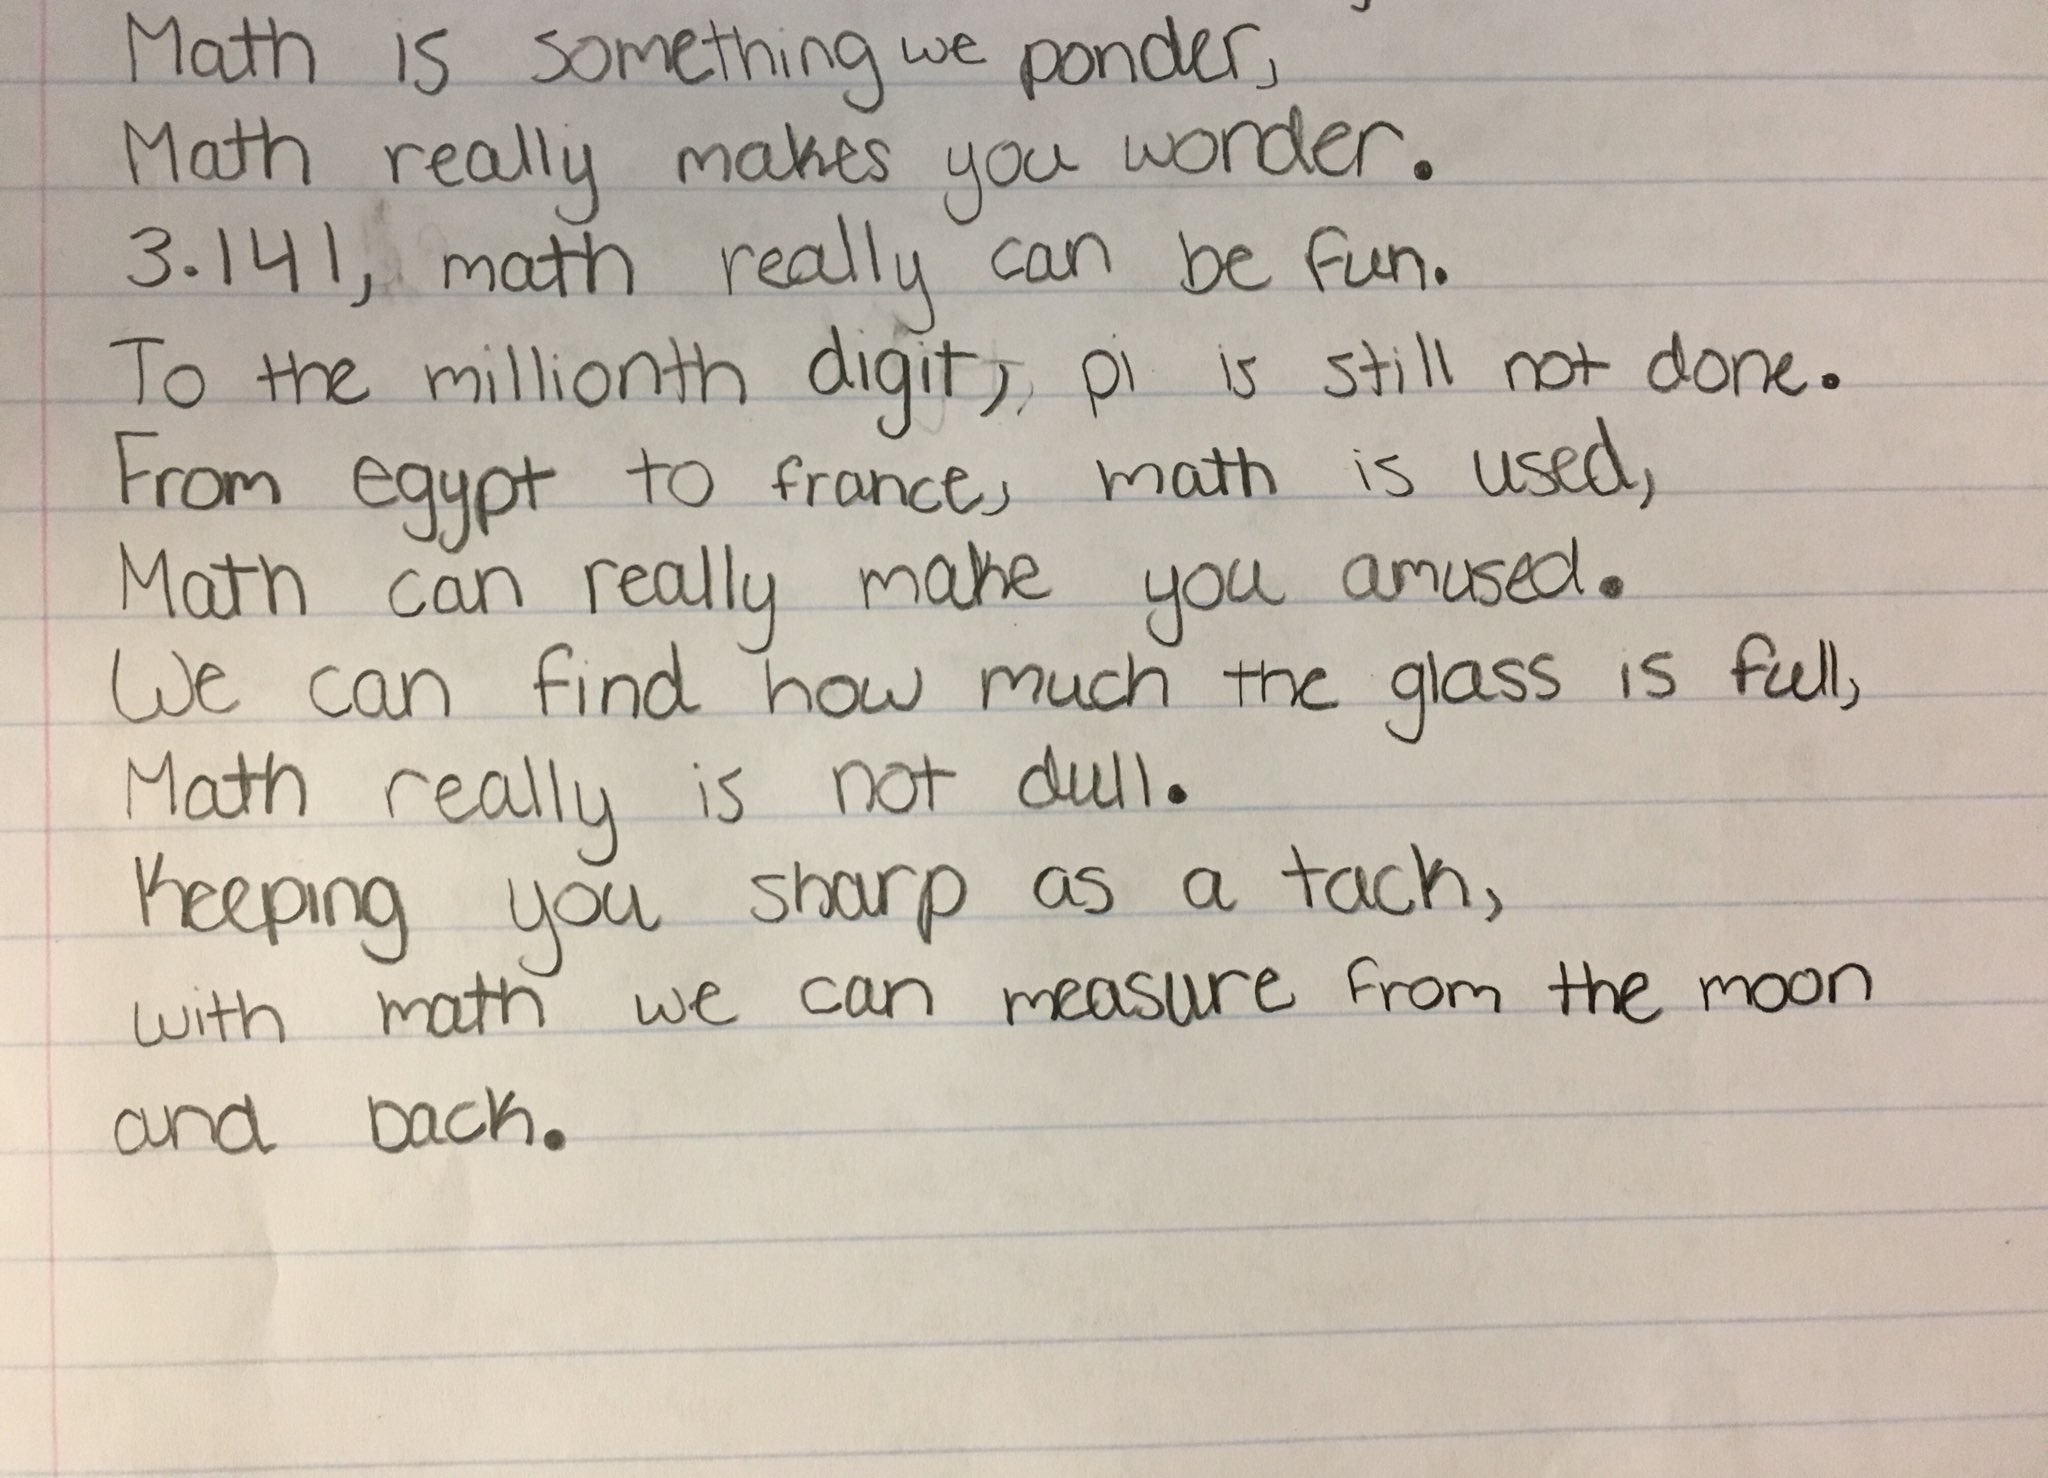 Math is something we ponder,
Math really makes you wonder.
3.141, math really can be fun.
To the millionth digit, pi is still not done.
From egypt to france, math is used,
Math can really make you amused.
We can find how much the glass is full,
Math really is not dull.
Keeping you sharp as a tack,
with math we can measure from the moon
and back.